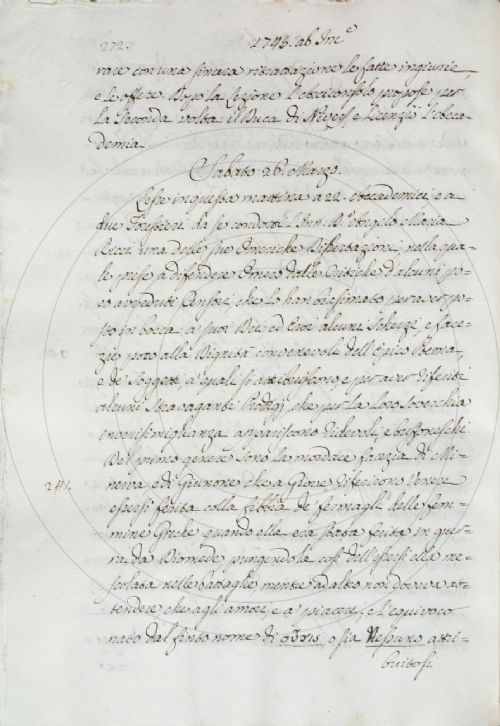 272. 1745. ab Inc.e
vare con una sincera ritrattazione le fatte ingiurie,
e le offese. Dopo la Lezione l'Arciconsolo propose per
la seconda volta il Duca di Nivers e licenziò l'Acca-
demia.
Sabato 26. Marzo.
Lesse in questa mattina a 22. Accademici e a
due Forestieri da se condotti Angelo Maria
Ricci una delle sue Omeriche Dissertazioni, nella qua-
le prese a difendere Omero dalle Critiche d'alcuni po-
co avveduti Censori, che lo han biasimato per aver po-
sto in bocca a' suoi Dei ed Eroi alcuni Scherzi, e face-
zie poco alla Dignità convenevole dell'Epico Poema,
e de' Soggetti, a' quali si attribuiscono e per aver inseriti
alcuni stravaganti Prodigj, che per la loro soverchia
inverisimiglianza appariscono ridevoli, e buffoneschi
Del primo genere sono la mordace facezia di Mi-
nerva e di Giunone che a Giove dissero Venere
241.
essersi ferita colla fibbia de' fermagli delle fem-
mine Greche quando ella era stata ferita in guer-
ra da Diomede pungendola così dell'essersi ella me-
scolata nelle battaglie, mentre ad altro non doveva at-
tendere che agli amori, e a' piaceri, el'equivoco
nato dal finto nome di οὖτις, o sia Nessuno attri-
buitosi